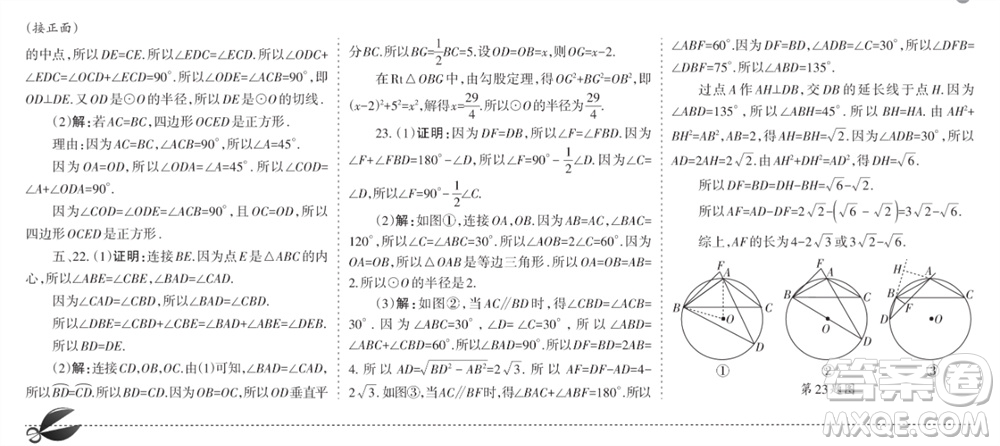 (接正面)
的中点,所以DE=CE.所以∠EDC=∠ECD.所以∠ODC+
∠EDC=∠OCD+∠ECD=90°.所以∠ODE=∠ACB=90°,即
OD⊥DE.又OD是⊙O的半径,所以DE是⊙O的切线.
(2)解:若AC=BC,四边形OCED是正方形.
理由:因为AC=BC,∠ACB=90°,所以∠A=45°.
因为OA=OD,所以∠ODA=∠A=45°.所以∠COD=
∠A+∠ODA=90°.
因为∠COD=∠ODE=∠ACB=90°,且OC=OD,所以
四边形OCED是正方形.
五、22.(1)证明:连接BE.因为点E是△ABC的内
心,所以∠ABE=∠CBE,∠BAD=∠CAD.
因为∠CBD=∠CAD,所以∠BAD=∠CBD.
所以∠DBE=∠CBD+∠CBE=∠BAD+∠ABE=∠DEB.
所以BD=DE.
(2)解:连接CD,OB,OC.由(1)可知,∠BAD=∠CAD,
所以BD=CD.所以BD=CD.因为OB=OC,所以OD垂直平
分BC.所以BG=1/2BC=5.设OD=OB=x,则OG=x-2.
在Rt△OBG中,由勾股定理,得OG²+BG²=OB²,即
(x-2)²+5²=x²,解得x=29/4.所以⊙O的半径为29/4.
23.(1)证明:因为DF=DB,所以∠F=∠FBD.因为
∠F+∠FBD=180°-∠D,所以∠F=90°-1/2∠D.因为∠C=
∠D,所以∠F=90°-1/2∠C.
(2)解:如图①,连接OA,OB.因为AB=AC,∠BAC=
120°,所以∠C=∠ABC=30°.所以∠AOB=2∠C=60°.因为
OA=OB,所以△OAB是等边三角形.所以OA=OB=AB=
2.所以⊙O的半径是2.
(3)解:如图②,当AC∥BD时,得∠CBD=∠ACB=
30°.因为∠ABC=30°,∠D=∠C=30°,所以∠ABD=
∠ABC+∠CBD=60°,∠BAD=90°.所以BD=2AB=
4.所以AD=√(BD²-AB²)=2√3.所以AF=DF-AD=4-
2√3.如图③,当AC∥BF时,得∠ABF+∠BAC=180°.所以
∠ABF=60°.因为DF=BD,∠ADB=∠C=30°,所以∠DFB=
∠DBF=75°.所以∠ABD=135°.
过点A作AH⊥DB,交DB的延长线于点H.因为
∠ABD=135°,所以∠ABH=45°.所以BH=HA.由AH²+
BH²=AB²,AB=2,得AH=BH=√2.因为∠ADB=30°,所以
AD=2AH=2√2.由AH²+DH²=AD²,得DH=√6.
所以DF=BD=DH-BH=√6-√2.
所以AF=AD-DF=2√2-(√6-√2)=3√2-√6.
综上,AF的长为4-2√3或3√2-√6.
F
A
B
C
O
D
①
F
A
B
C
O
D
②
H
A
B
F
C
D
O
③
第23题图
答案卷
MXQE.COM